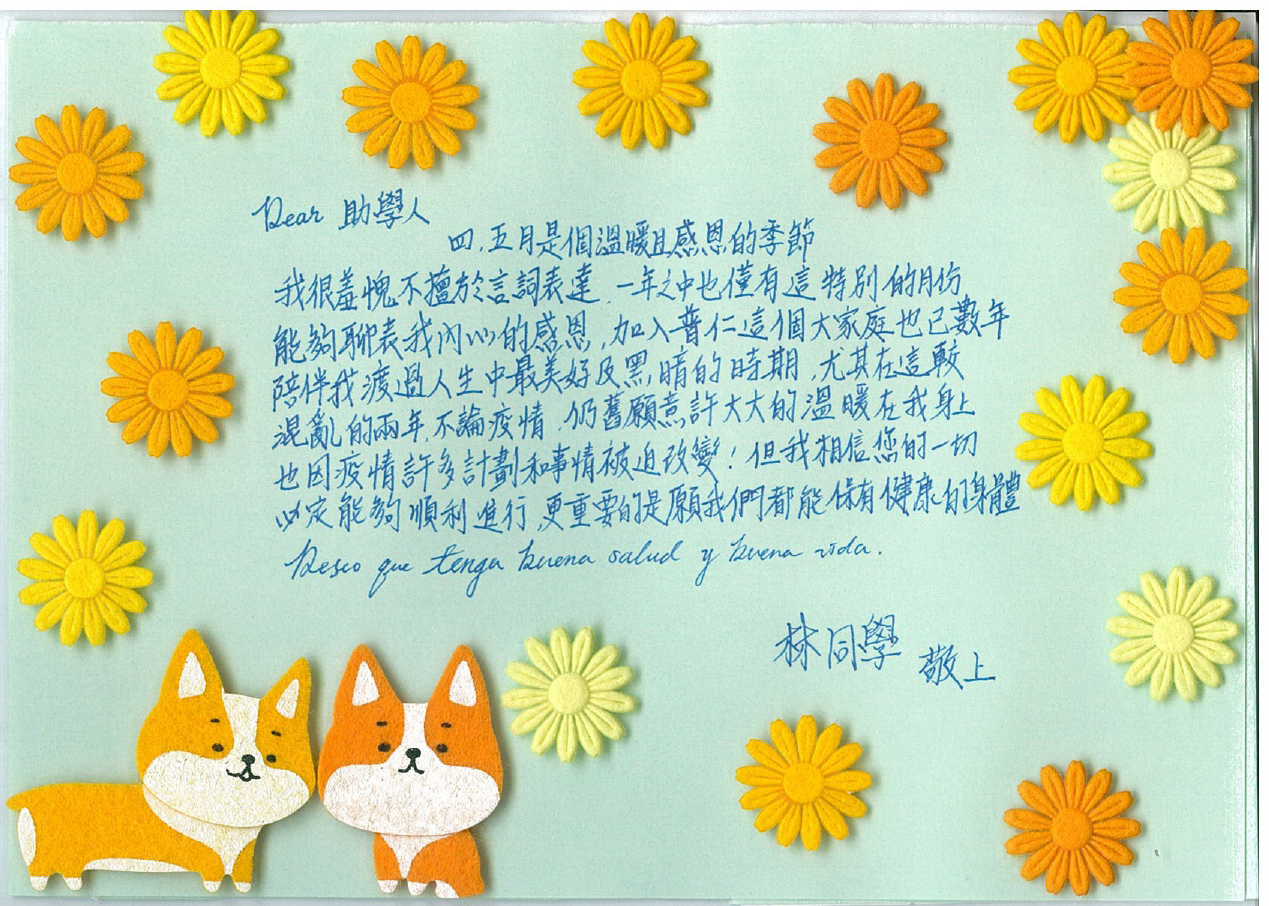 Dear 助學人
四、五月是個溫暖且感恩的季節
我很羞愧不擅於言詞表達,一年之中也僅有這特別的月份
能夠聊表我內心的感恩,加入普仁這個大家庭也已數年
陪伴我渡過人生中最美好及黑暗的時期,尤其在這較
混亂的兩年,不論疫情,仍舊願意許大大的溫暖在我身上
也因疫情許多計劃和事情被迫改變!但我相信您的一切
必定能夠順利進行,更重要的是願我們都能保有健康的身體
Deseo que tenga buena salud y buena vida.
林同學 敬上